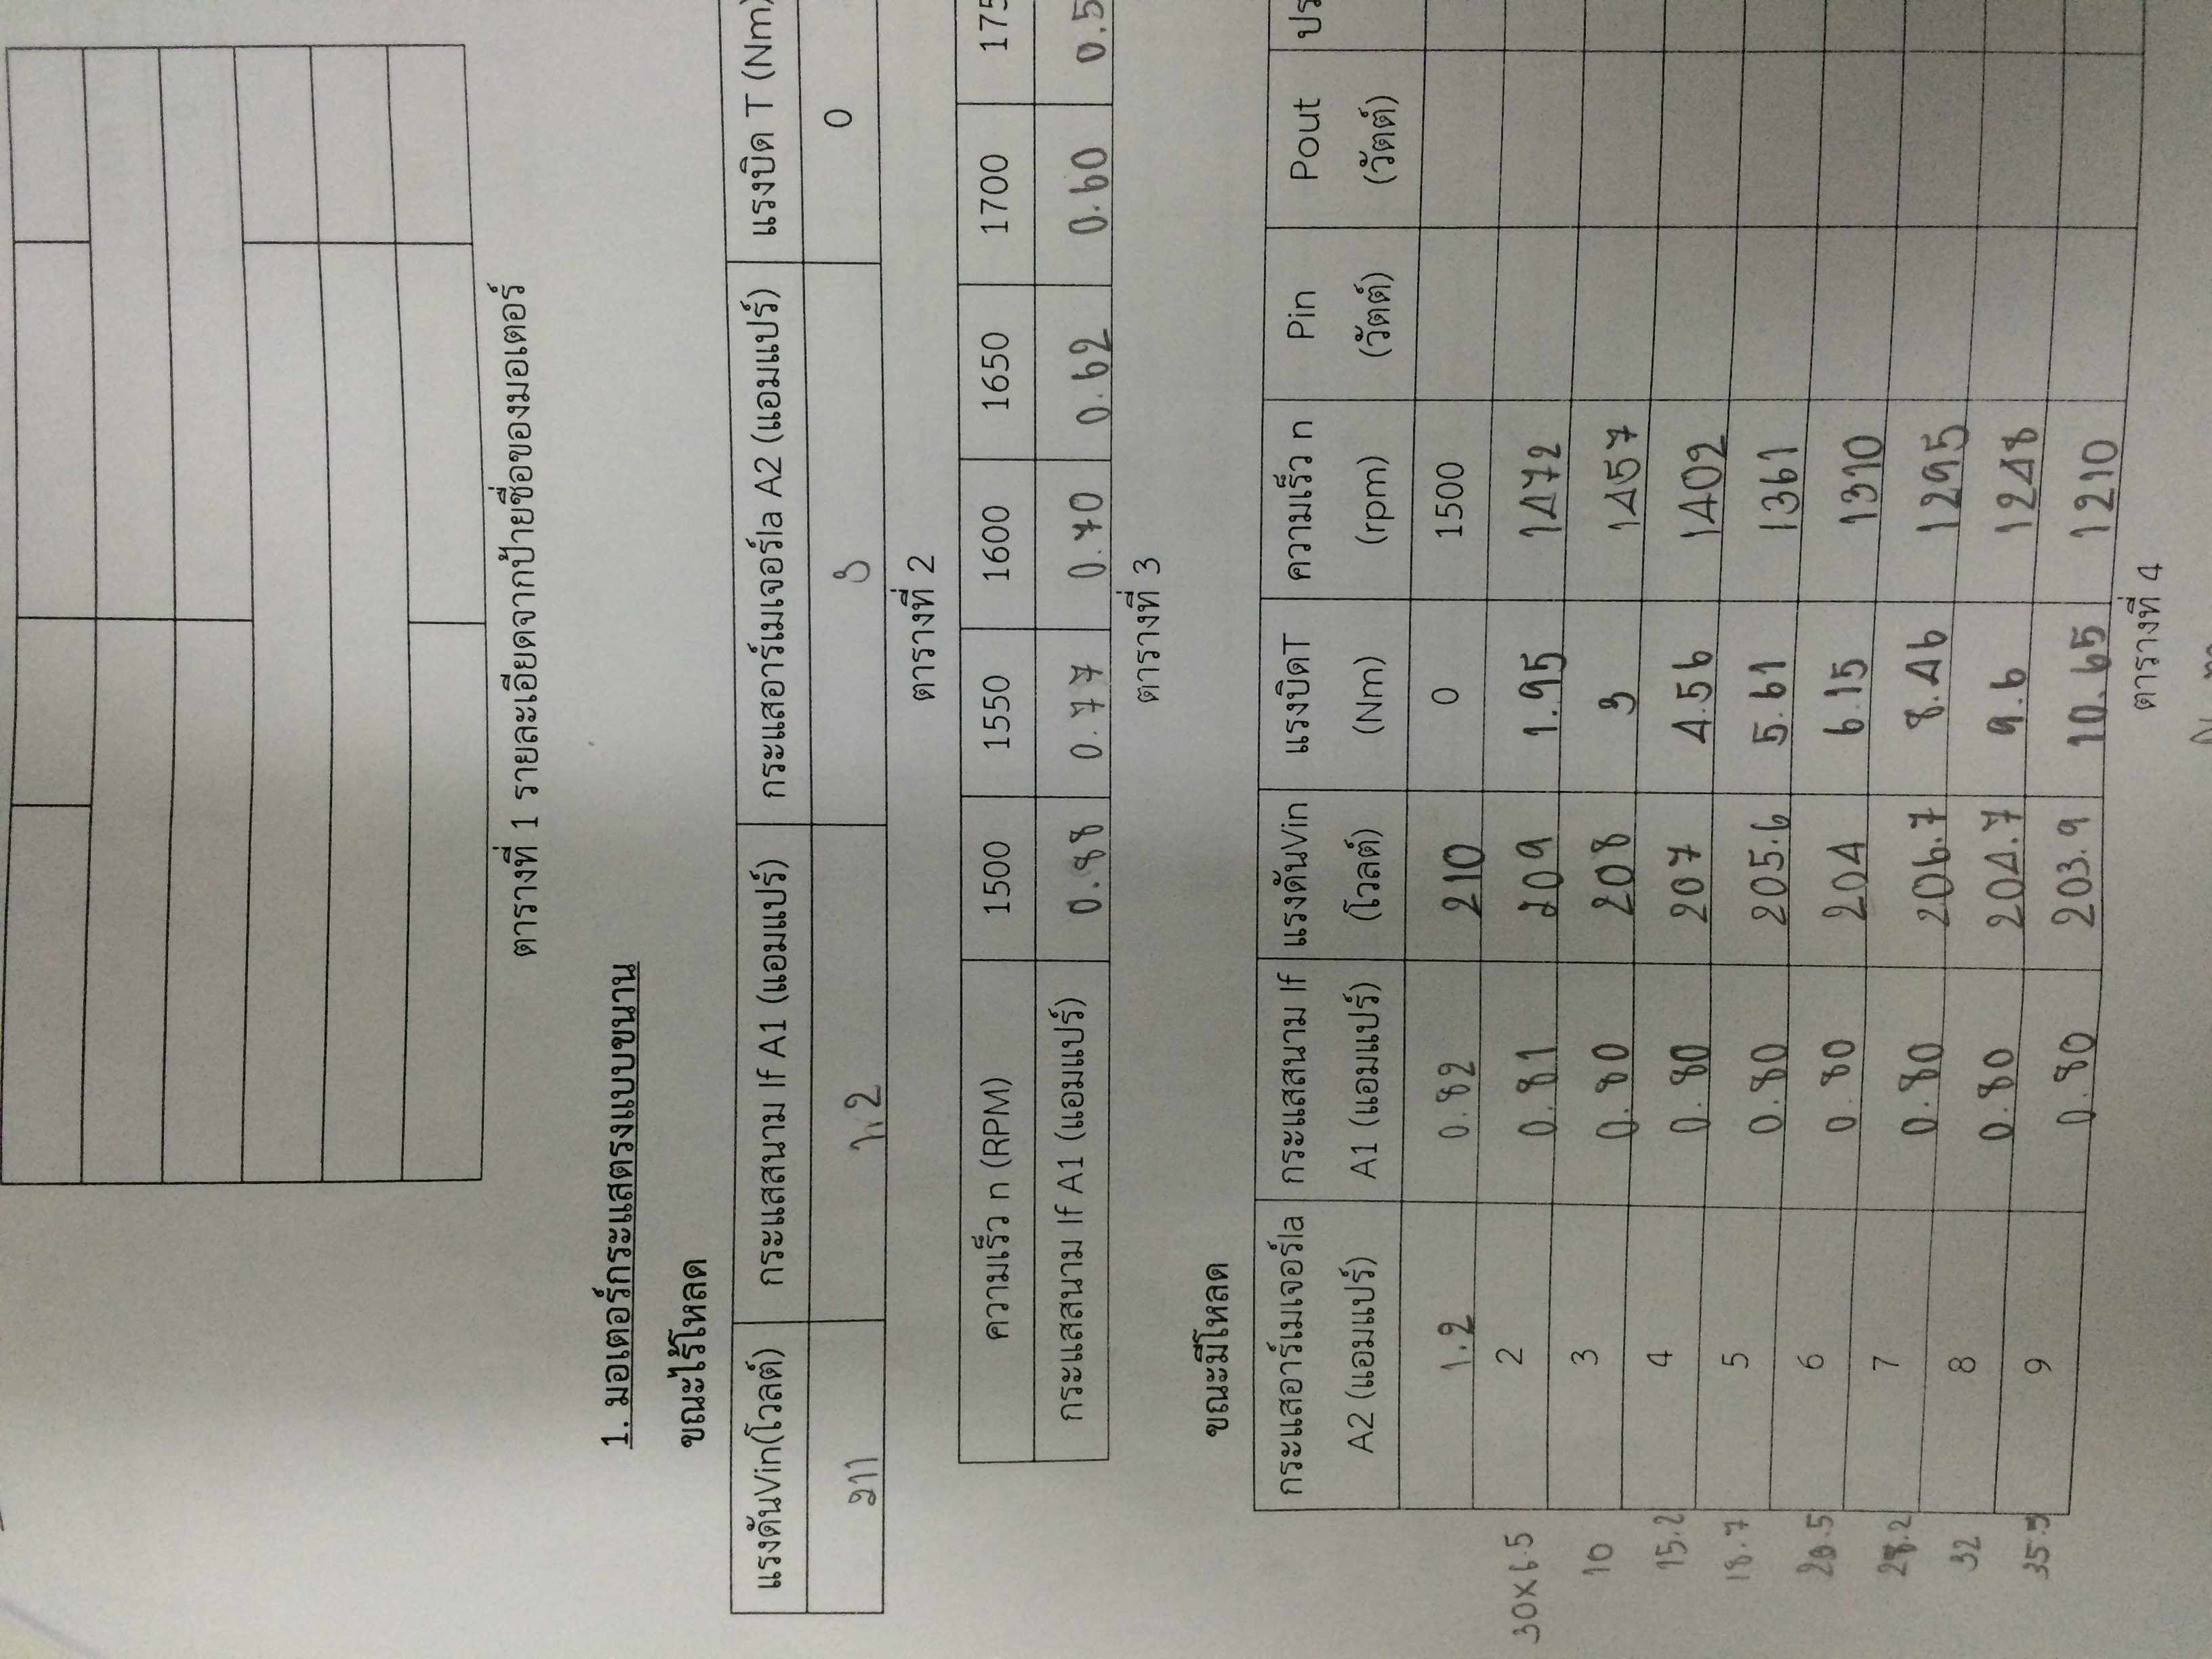 ตารางที่ 1 รายละเอียดจากป้ายชื่อของมอเตอร์
1. มอเตอร์กระแสตรงแบบขนาน
ขณะไร้โหลด
แรงดันVin(โวลต์) กระแสสนาม If A1 (แอมแปร์) กระแสอาร์เมเจอร์Ia A2 (แอมแปร์) แรงบิด T (Nm)
211 1.2 0
ตารางที่ 2
ความเร็ว n (RPM) 1500 1550 1600 1650 1700 175
กระแสสนาม If A1 (แอมแปร์) 0.88 0.77 0.70 0.62 0.60 0.5
ตารางที่ 3
ขณะมีโหลด
กระแสอาร์เมเจอร์Ia กระแสสนาม If แรงดันVin แรงบิดT ความเร็ว n Pin Pout ปร
A2 (แอมแปร์) A1 (แอมแปร์) (โวลต์) (Nm) (rpm) (วัตต์) (วัตต์)
1.2 0.82 210 0 1500
30x6.5 2 0.81 209 1.95 1472
10 3 0.80 208 3 1457
15.2 4 0.80 207 4.56 1402
18.7 5 0.80 205.6 5.61 1361
20.5 6 0.80 204 6.15 1310
28.2 7 0.80 206.7 8.46 1295
32 8 0.80 204.7 9.6 1248
35.5 9 0.80 203.9 10.65 1210
ตารางที่ 4